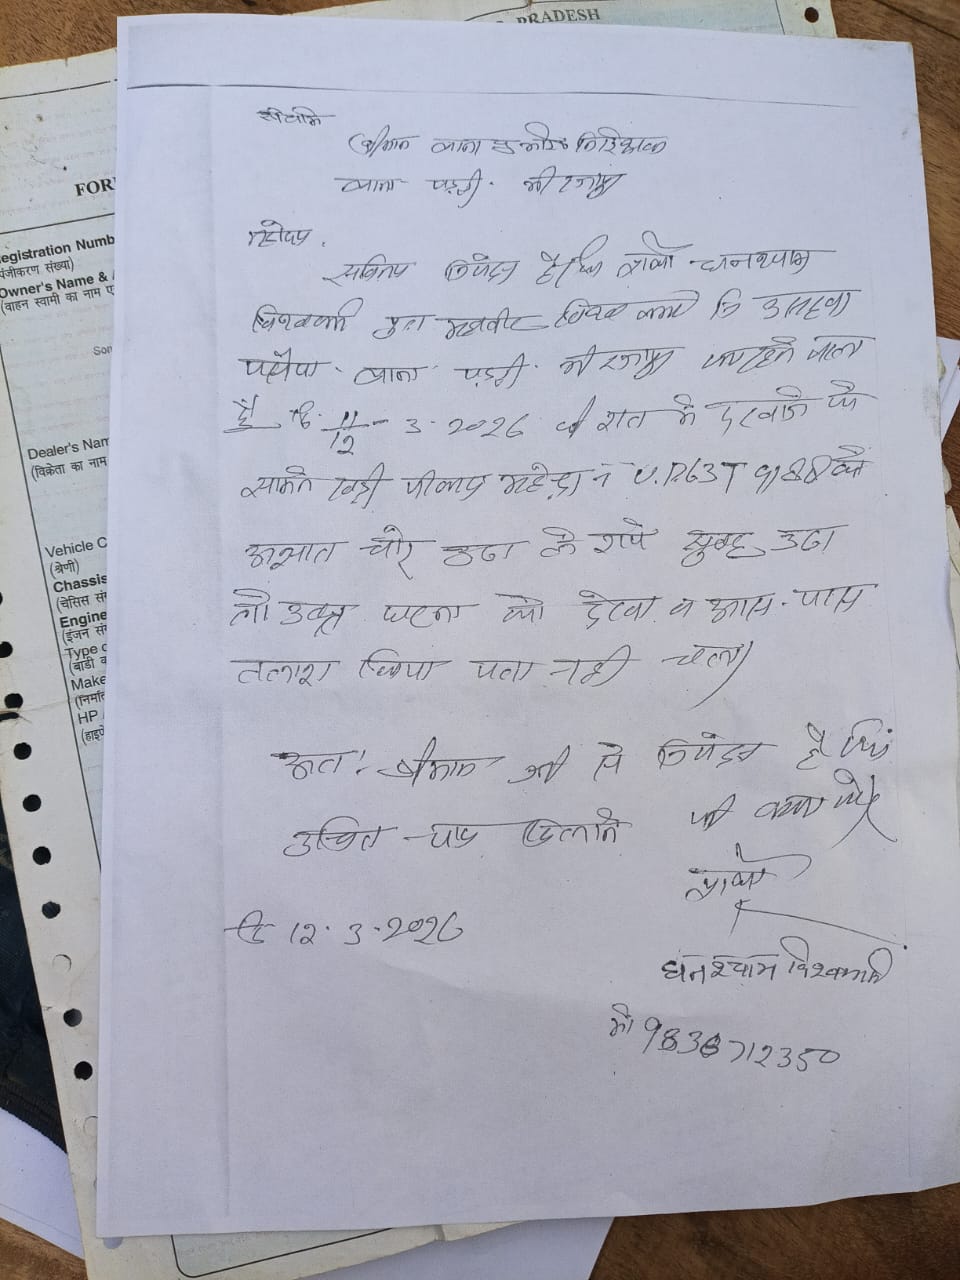 PRADESH
FOR
egistration Numb
पंजीकरण संख्या)
Owner's Name &
(वाहन स्वामी का नाम ए
Son
Dealer's Nam
(विक्रेता का नाम
Vehicle C
(श्रेणी)
Chassis
(चेसिस सं
Engine
(इंजन सं
Type o
(बाडी क
Make
(निर्मा
HP
(हाइपे
सेवा में
श्रीमान थाना प्रभारी निरीक्षक
थाना पड़री मीरजापुर
महोदय,
सविनय निवेदन है कि प्रार्थी घनश्याम
विश्वकर्मा पुत्र महावीर विश्वकर्मा
थाना पड़री मीरजापुर का रहने वाला
है दि. 11/12-3-2026 की रात में दरवाजे के
सामने खड़ी पीकप महेन्द्रा नं U.P.63T 9188 को
अज्ञात चोर उठा ले गये सुबह उठा
तो उक्त घटना को देखा व आस-पास
तलाश किया पता नहीं चला।
अतः श्रीमान जी से निवेदन है कि
उचित न्याय दिलाने की कृपा करें
प्रार्थी
दि 12.3.2026
घनश्याम विश्वकर्मा
मो 9838712350